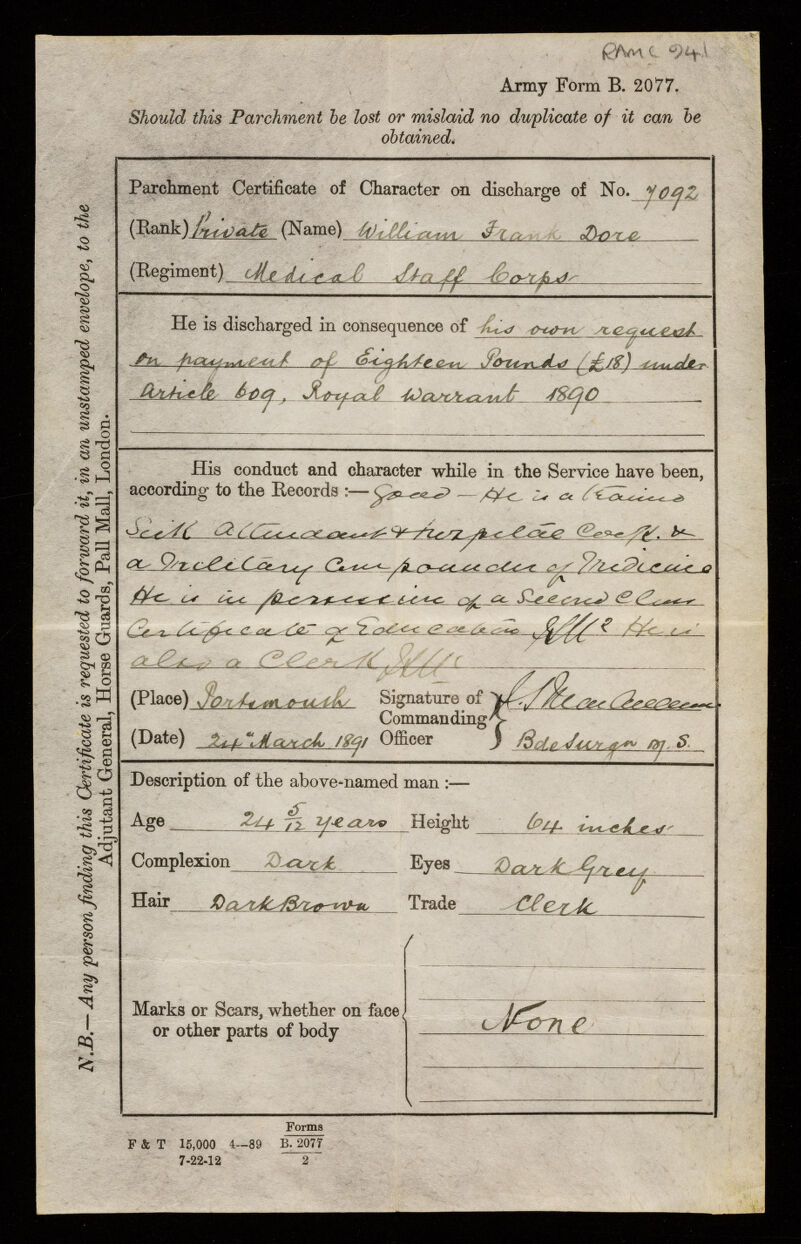 RAMC 941
Army Form B. 2077.
Should this Parchment be lost or mislaid no duplicate of it can be
obtained.
Parchment Certificate of Character on discharge of No. 7092
(Rank) Private (Name) William Frank Dore
(Regiment) Medical Staff Corps
He is discharged in consequence of his own request
on payment of Eighteen Pounds (£18) under
Article 609, Royal Warrant 1890
His conduct and character while in the Service have been,
according to the Records :— Good — He is a trained
Sick Attendant & hospital Cook. &
a Military Compounder of Medicine
He is in possession of a Second Class
Certificate of Education He is
also a Clerk
(Place) Portsmouth Signature of
Commanding
(Date) 24th March 1891 Officer Bde Surgn M. S.
Description of the above-named man :—
Age 24 5/12 years Height 64 inches
Complexion Dark Eyes Dark Grey
Hair Dark Brown Trade Clerk
Marks or Scars, whether on face
or other parts of body None
F & T 15,000 4—89 Forms B. 2077
7-22-12 2
N.B.—Any person finding this Certificate is requested to forward it, in an unstamped envelope, to the
Adjutant General, Horse Guards, Pall Mall, London.